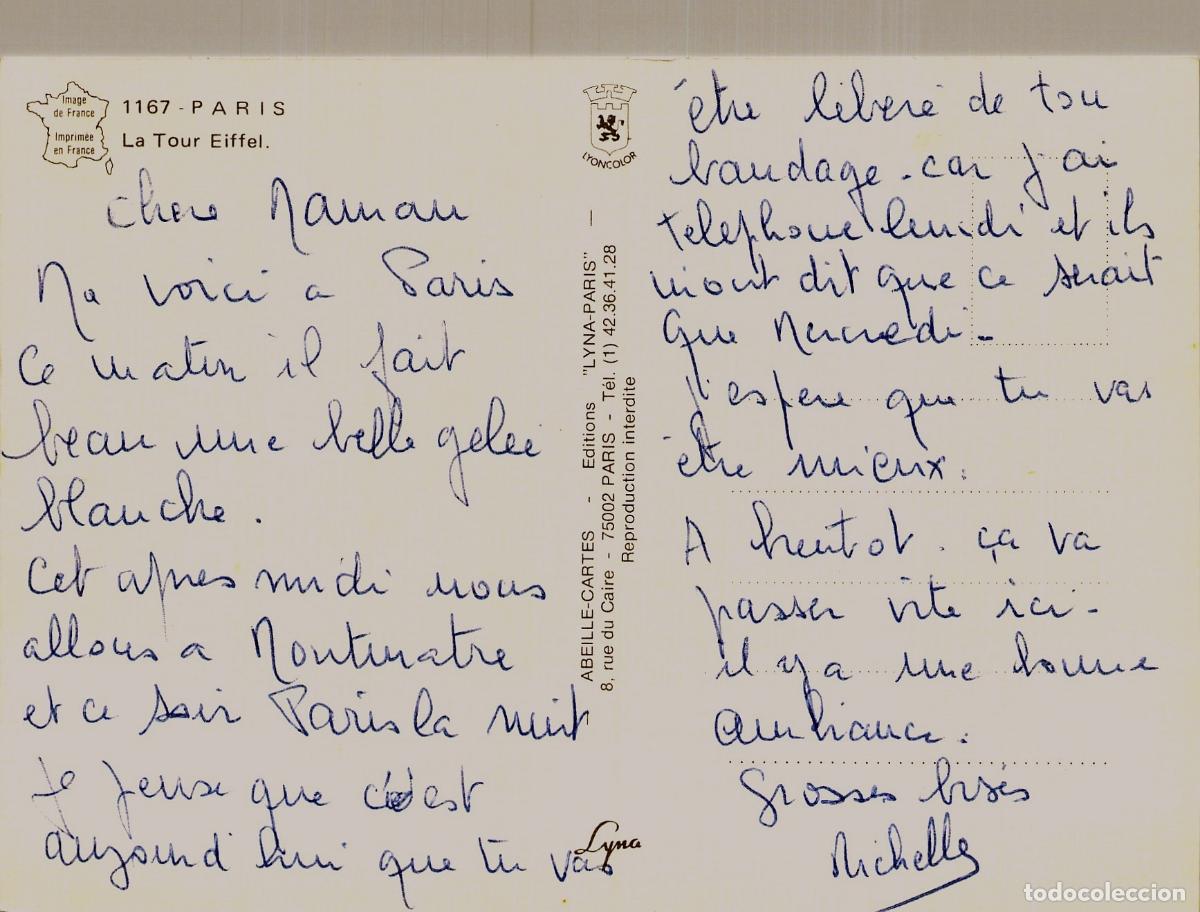 Image
de France
Imprimée
en France
1167 - PARIS
La Tour Eiffel.
chere Maman
Me voici a Paris
Ce matin il fait
beau une belle gelée
blanche.
Cet apres midi nous
allons a Montmatre
et ce soir Paris la nuit
Je pense que c'est
aujourd hui que tu vas
LYONCOLOR
ABEILLE-CARTES - Editions "LYNA-PARIS" —
8, rue du Caire - 75002 PARIS - Tél. (1) 42.36.41.28
Reproduction interdite
Lyna
être libéré de ton
bandage. car j'ai
telephone lundi et ils
m'ont dit que ce serait
que Mercredi -
J'espere que tu vas
être mieux.
A bientot. ça va
passer vite ici -
il y a une bonne
ambiance.
Grosses bises
Michelle
todocoleccion